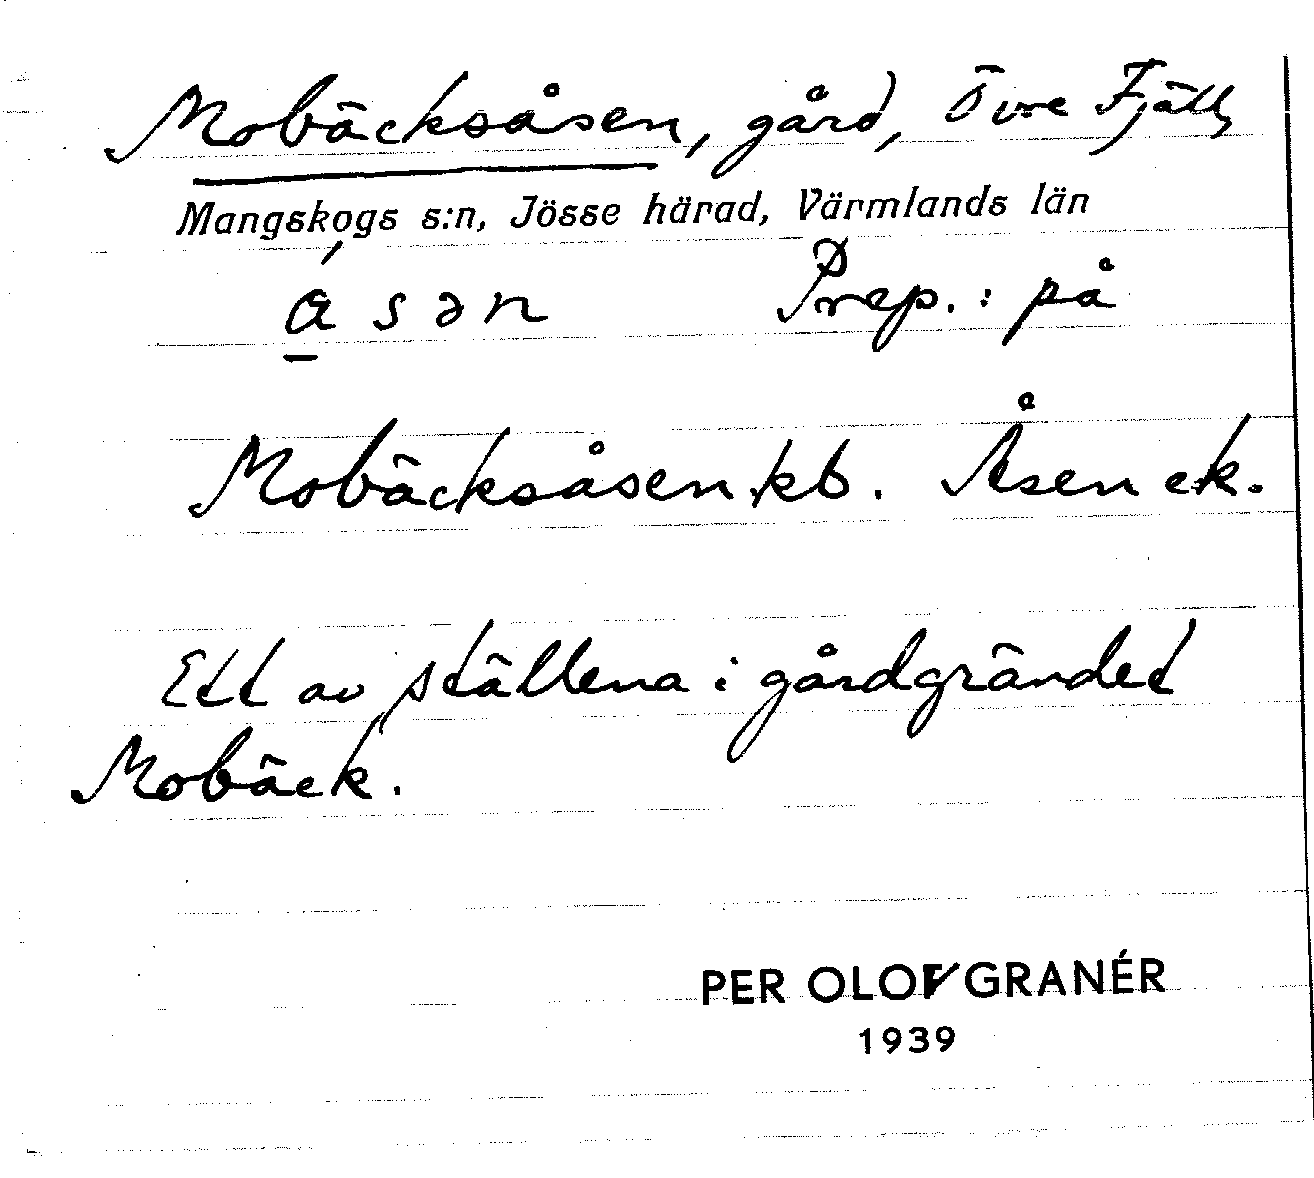 Mobäcksåsen, gård, Övre Fjäll
Mangskogs s:n, Jösse härad, Värmlands län
ǻsən Prep.: på
Mobäcksåsen kb. Åsen ek.
Ett av ställena i gårdgrändet
Mobäck.
PER OLOF GRANÉR
1939